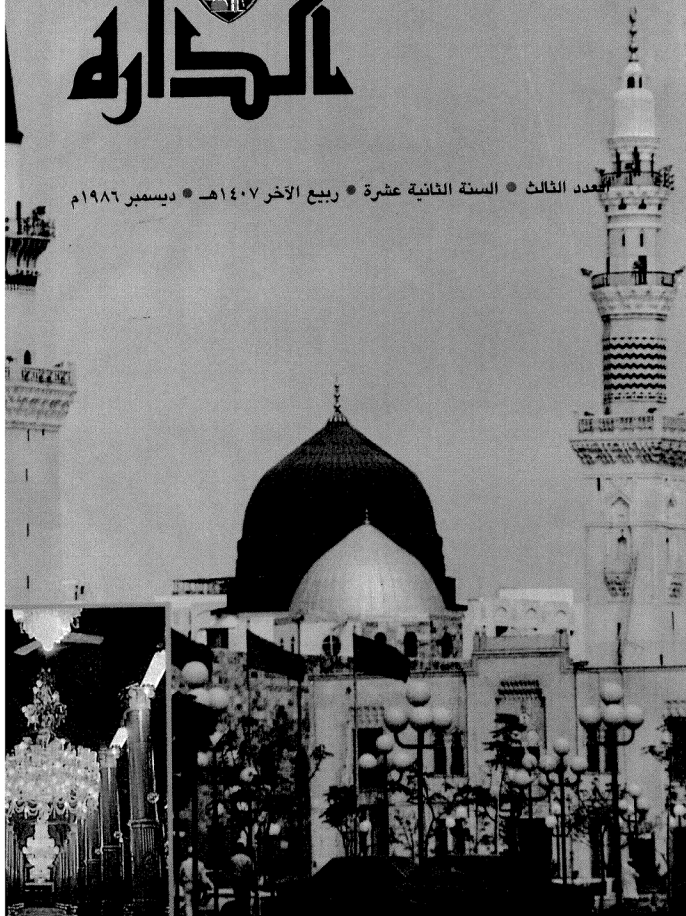 الدارة
العدد الثالث • السنة الثانية عشرة • ربيع الآخر ١٤٠٧هـ • ديسمبر ١٩٨٦م